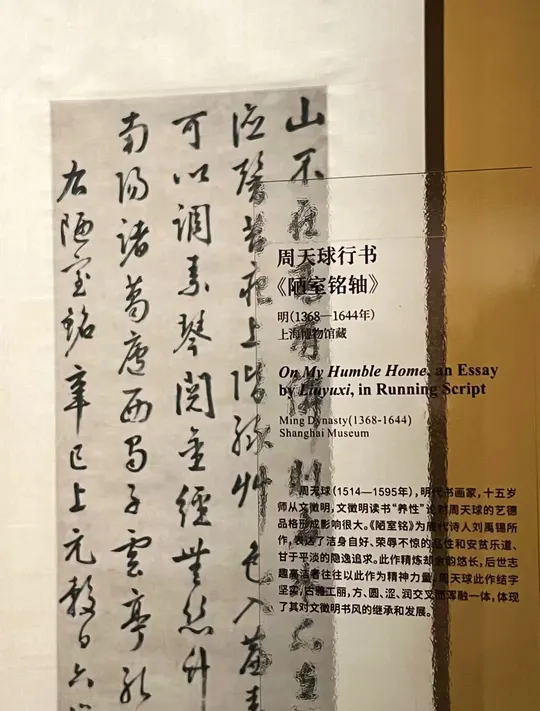 山不在
德馨苔痕上階緑艸色入簾青
可以調素琴閱金經無絲竹
南陽諸葛廬西蜀子雲亭孔
右陋室銘辛巳上元
周天球行书
《陋室铭轴》
明(1368—1644年)
上海博物馆藏
On My Humble Home, an Essay
by Liuyuxi, in Running Script
Ming Dynasty(1368-1644)
Shanghai Museum
周天球(1514—1595年)，明代书画家，十五岁
师从文徵明，文徵明读书“养性”论对周天球的艺德
品格形成影响很大。《陋室铭》为唐代诗人刘禹锡所
作，表达了洁身自好、荣辱不惊的品性和安贫乐道、
甘于平淡的隐逸追求。此作精炼却余韵悠长，后世志
趣高洁者往往以此作为精神力量。周天球此作结字
坚实，古雅工丽，方、圆、涩、润交叉而浑融一体，体现
了其对文徵明书风的继承和发展。